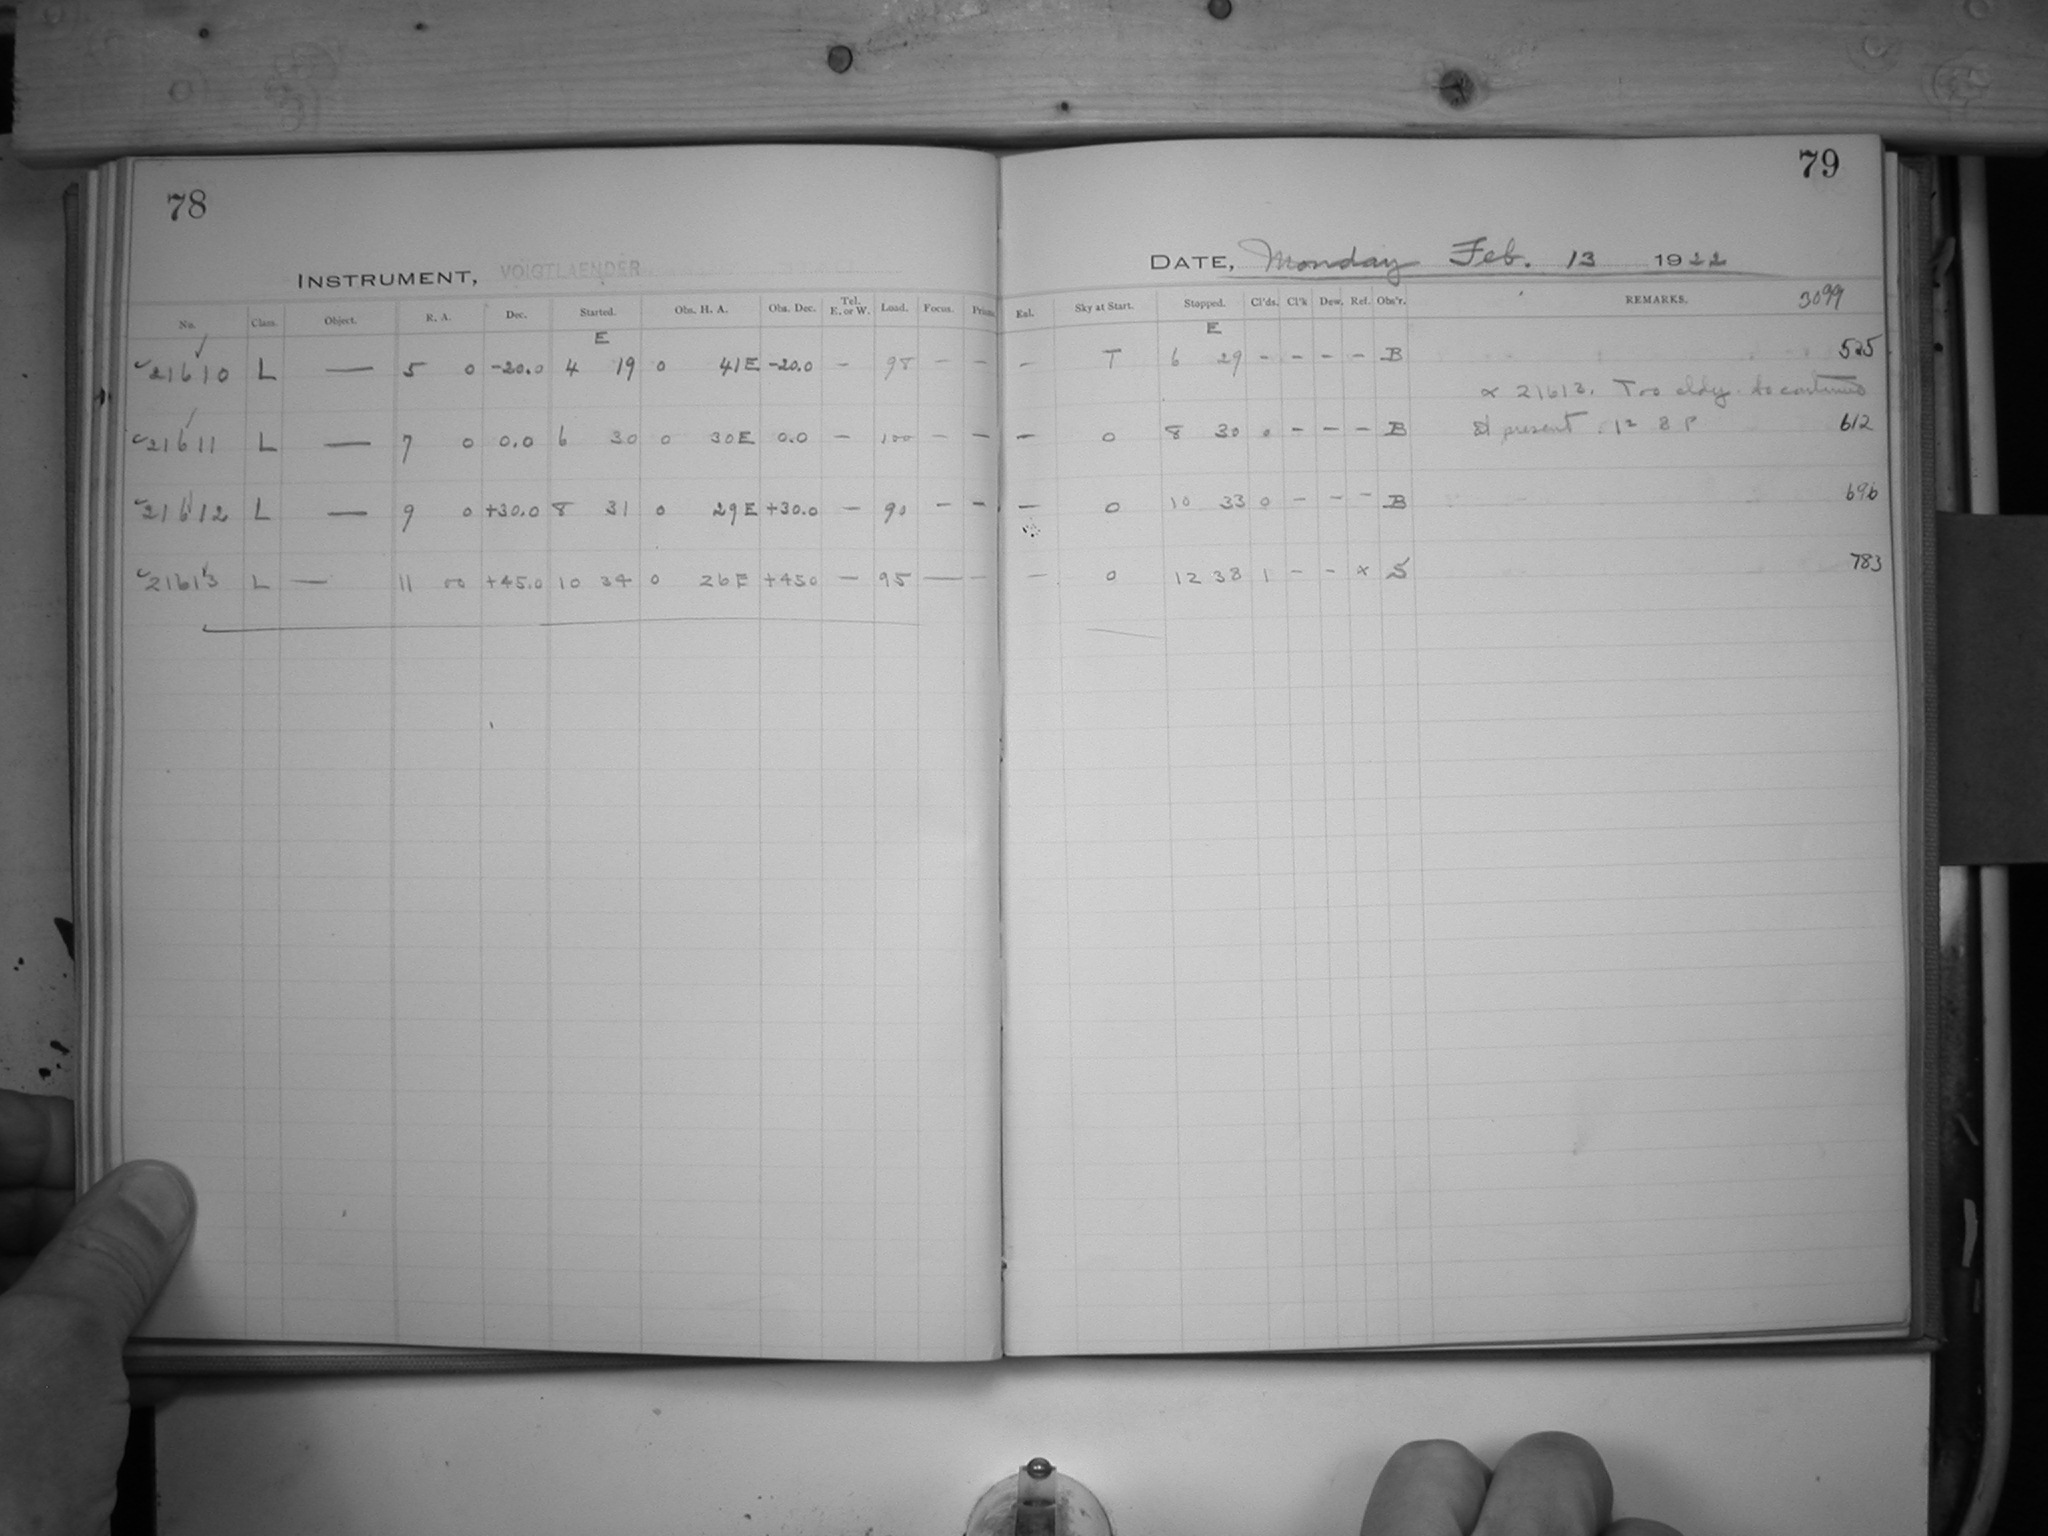 78
INSTRUMENT, VOIGTLAENDER
No. Class. Object. R. A. Dec. Started. Obs. H. A. Obs. Dec. Tel. E. or W. Load. Focus. Prism.
E
21610 L — 5 0 -20.0 4 19 0 41E -20.0 - 98 - -
21611 L — 7 0 0.0 6 30 0 30E 0.0 - 100 - -
21612 L — 9 0 +30.0 8 31 0 29E +30.0 - 90 - -
21613 L — 11 00 +45.0 10 34 0 26E +450 - 95 — -
79
DATE, Monday Feb. 13 1922
Sky at Start. Stopped. Cl'ds. Cl'k Dew. Ref. Obs'r. REMARKS. 3099
E
- T 6 29 - - - - B 525
x 21613. Too cldy to continue
- 0 8 30 0 - - - B at present. 12 8 P 612
- 0 10 33 0 - - - B 696
- 0 12 38 1 - - x S 783